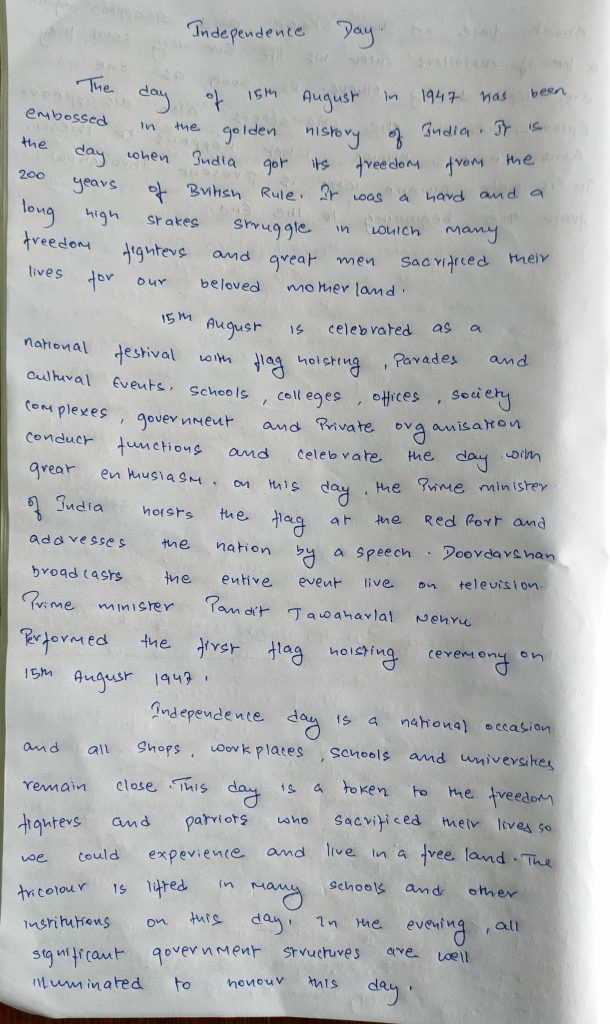 Independence Day.
The day of 15th August in 1947 has been
embossed in the golden history of India. It is
the day when India got its freedom from the
200 years of British Rule. It was a hard and a
long high stakes struggle in which many
freedom fighters and great men sacrificed their
lives for our beloved motherland.
15th August is celebrated as a
national festival with flag hoisting, Parades and
cultural Events. Schools, colleges, offices, society
complexes, government and Private organisation
conduct functions and celebrate the day with
great enthusiasm. on this day, the Prime minister
of India hoists the flag at the Red Fort and
addresses the nation by a speech. Doordarshan
broadcasts the entire event live on television.
Prime minister Pandit Jawaharlal Nehru
Performed the first flag hoisting ceremony on
15th August 1947.
Independence day is a national occasion
and all shops, workplaces, schools and universities
remain close. This day is a token to the freedom
fighters and patriots who sacrificed their lives so
we could experience and live in a free land. The
tricolour is lifted in many schools and other
institutions on this day. In the evening, all
significant government structures are well
illuminated to honour this day.